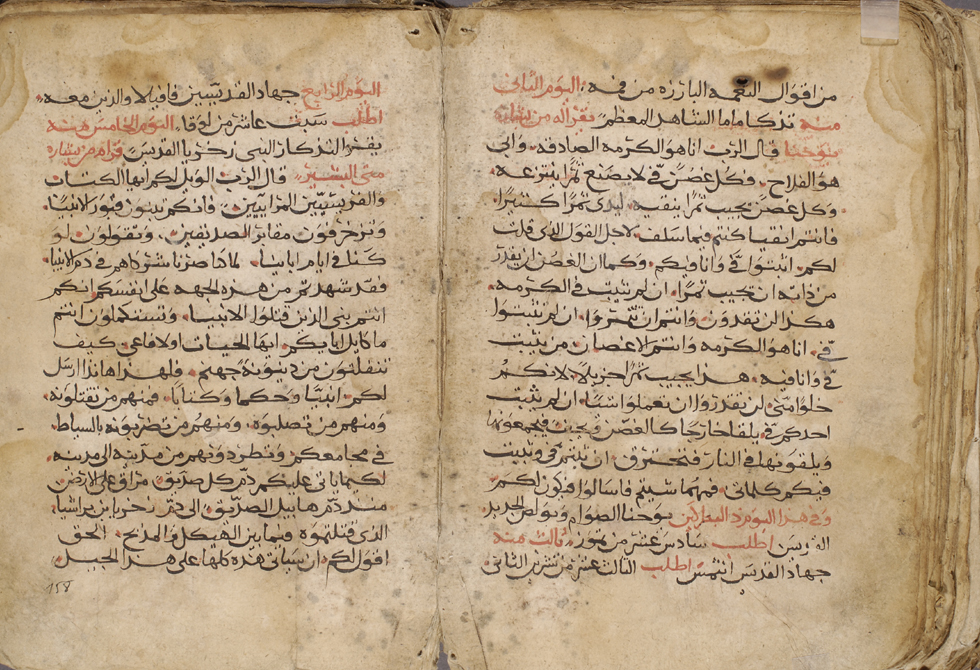 من اقوال النعمه البارزه من فمه اليوم الثاني
منه تذكار ماما الشاهد المعظم نقرا له من بشاره
يوحنا قال الرب انا هو الكرمه الصادقه وابي
هو الفلاح وكل غصن في لا يصنع ثمرا ينتزعه
وكل غصن يجيب ثمرا ينقيه ليدي ثمرا كثيرا
فانتم انقيا كنتم فيما سلف لاجل القول الذي قلت
لكم اثبتوا في وانا فيكم وكما ان الغصن لن يقدر
من ذاته ان يجيب ثمرا ان لم يثبت في الكرمه
هكذا لن تقدرون وانتم ان لم تثبتوا
في انا هو الكرمه وانتم الاغصان من يثبت
في وانا فيه هذا يجيب ثمرا جزيلا لانكم
خلوا مني لن تقدروا ان تعملوا شيا ان لم يثبت
احدكم في يلقا خارجا كالغصن ويجف فيجمعونها
ويلقونها في النار فتحترق ان ثبتم في وثبت
فيكم كلماتي فمهما شيتم فاسالوا فيكون لكم
وفي هذا اليوم البطريرك يوحنا الصوام وبولص الجديد
القديسين اطلب سادس عشر من تموز ثالث منه
جهاد القديس انثيمس اطلب الثالث عشر من تشرين الثاني
اليوم الرابع جهاد القديسين فافيلا والذين معه
اطلب سبت عاشر من لوقا اليوم الخامس منه
يقرا لتذكار النبي زخريا القديس قرا من بشاره
متى البشير قال الرب الويل لكم ايها الكتاب
والفريسيين المراييين فانكم تبنون قبور الانبيا
وتزخرفون مقابر الصديقين وتقولون لو
كنا في ايام اباينا لما ذا صرنا شركاهم في دم الانبيا
فقد تشهدتم من هذه الجهه على انفسكم انكم
انتم بني الذين قتلوا الانبيا وتستكملون انتم
مكايل ابايكم ايها الحيات اولاد افاعي كيف
تنفلتون من دينونة جهنم فلهذا هانذا ارسل
لكم انبيا وحكما وكتابا فمنهم من تقتلونه
ومنهم من تصلبوه ومنهم من تضربونه بالسياط
في مجامعكم وتطردونهم من مدينه الى مدينه
لكيما ياتي عليكم دم كل صديق مراق على الارض
منذ دم هابيل الصديق الى دم زخريا بن براشيا
الذي قتلتموه فيما بين الهيكل والمذبح الحق
اقول لكم ان سياتي هذه كلها على هذا الجيل
158